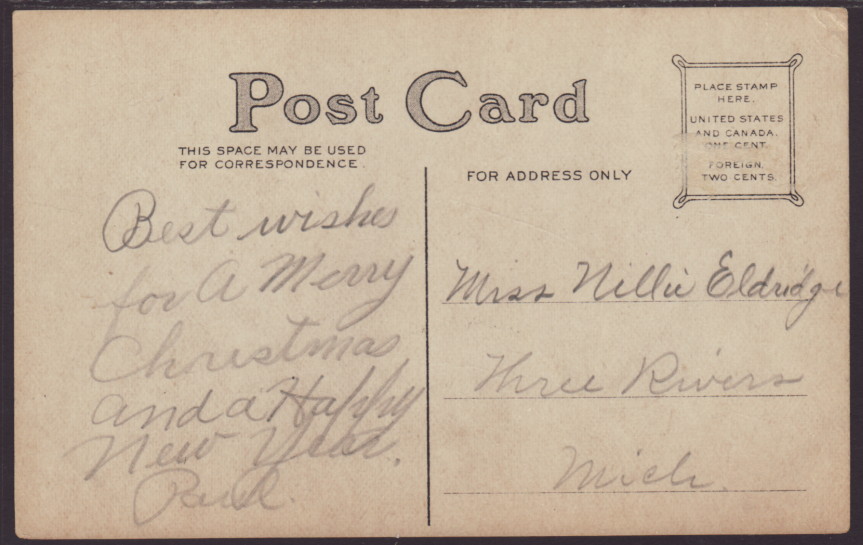 Post Card
THIS SPACE MAY BE USED
FOR CORRESPONDENCE.
FOR ADDRESS ONLY
PLACE STAMP
HERE.
UNITED STATES
AND CANADA.
ONE CENT.
FOREIGN,
TWO CENTS.
Best wishes
for A Merry
Christmas
and a Happy
New Year.
Miss Nillie Eldridge
Three Rivers
Mich.